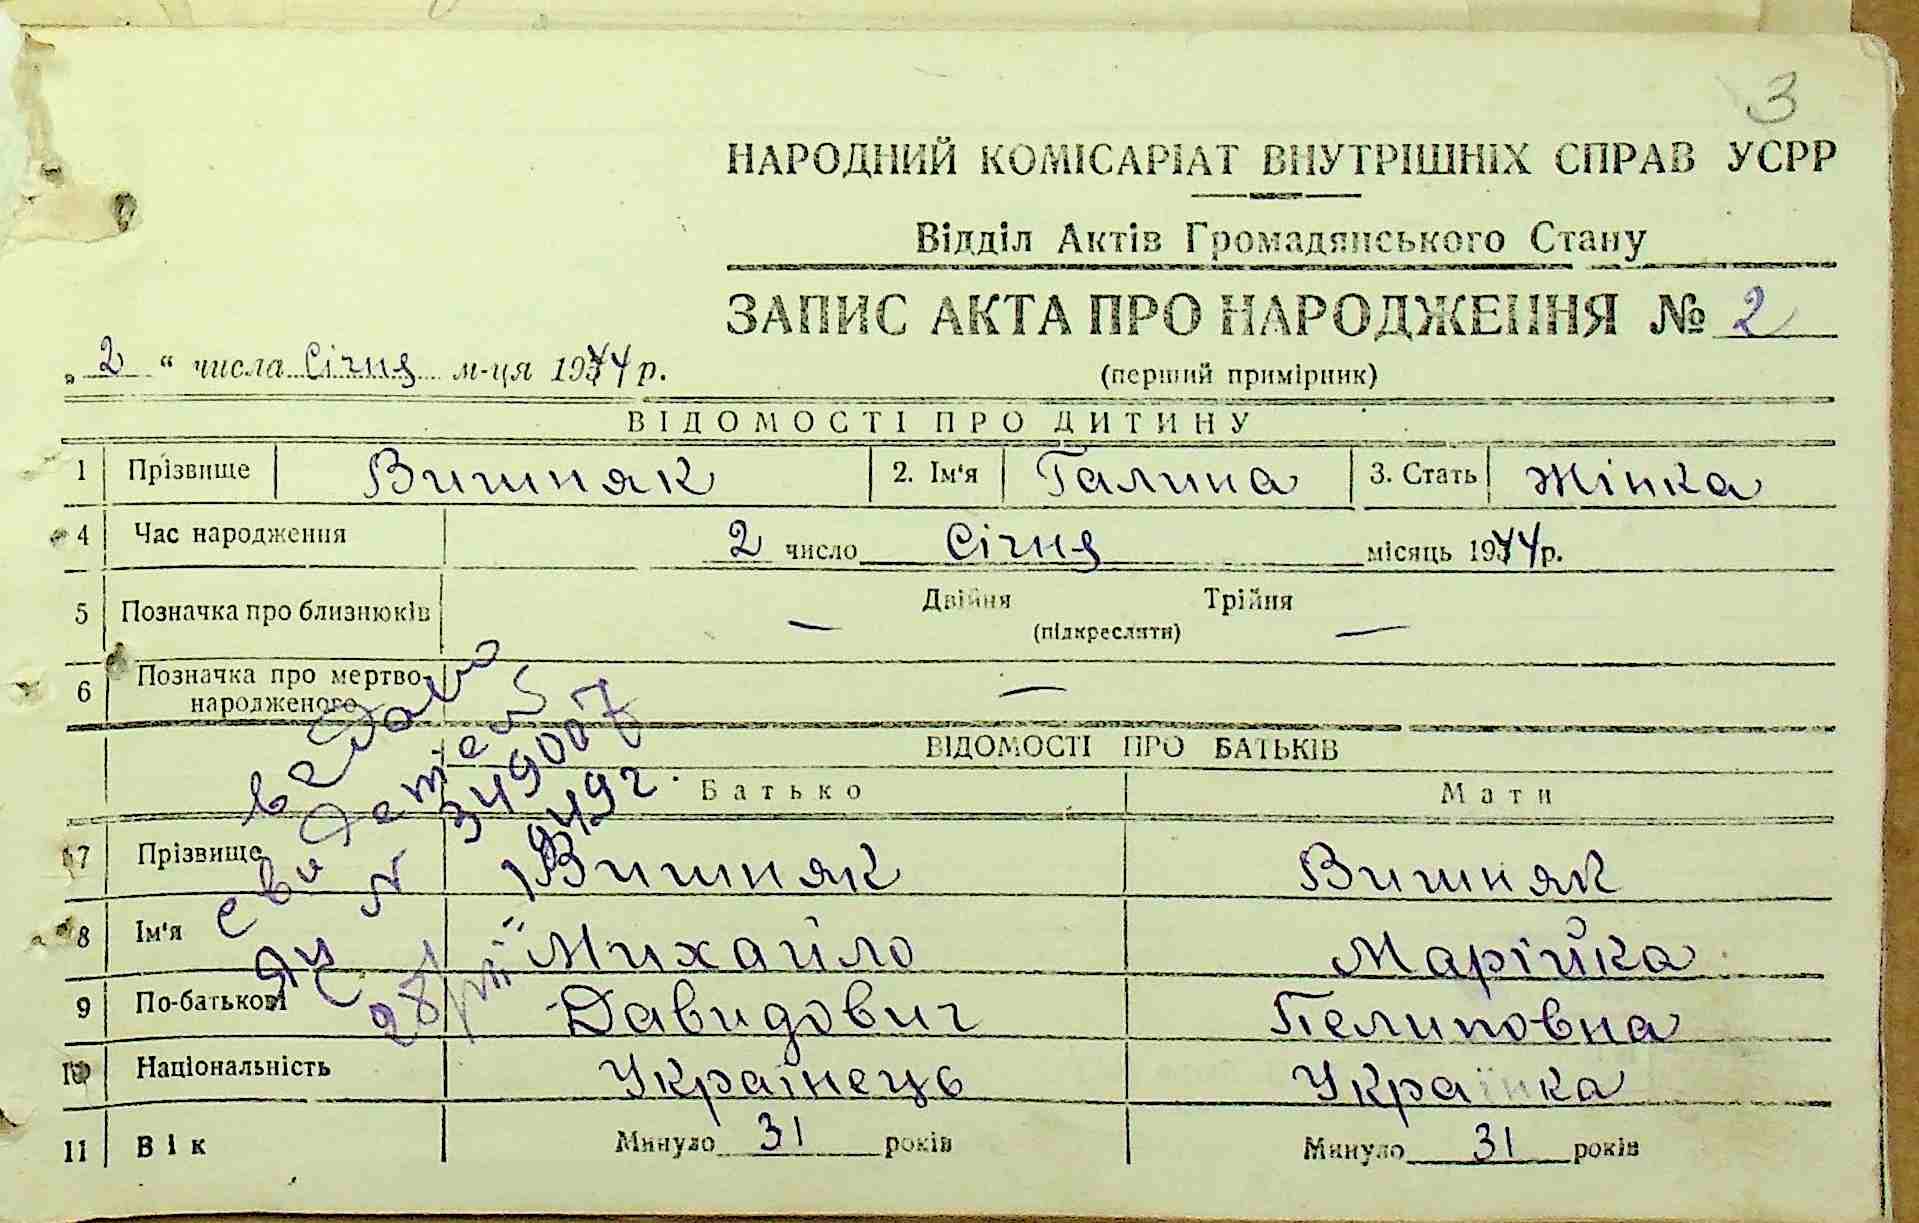 3
НАРОДНИЙ КОМІСАРІАТ ВНУТРІШНІХ СПРАВ УСРР
Відділ Актів Громадянського Стану
ЗАПИС АКТА ПРО НАРОДЖЕННЯ № 2
„ 2 “ числа Січня м-ця 1944 р.
(перший примірник)
ВІДОМОСТІ ПРО ДИТИНУ
1 Прізвище Вишняк 2. Ім'я Галина 3. Стать Жінка
4 Час народження 2 число Січня місяць 1944 р.
5 Позначка про близнюків — Двійня Трійня —
(підкреслити)
6 Позначка про мертво-
народженого —
ВІДОМОСТІ ПРО БАТЬКІВ
Батько Мати
7 Прізвище Вишняк Вишняк
8 Ім'я Михайло Марійка
9 По-батькові Давидович Пелиповна
10 Національність Українець Українка
11 Вік Минуло 31 років Минуло 31 років
видано
ЯЦ № 349007
1949 г.